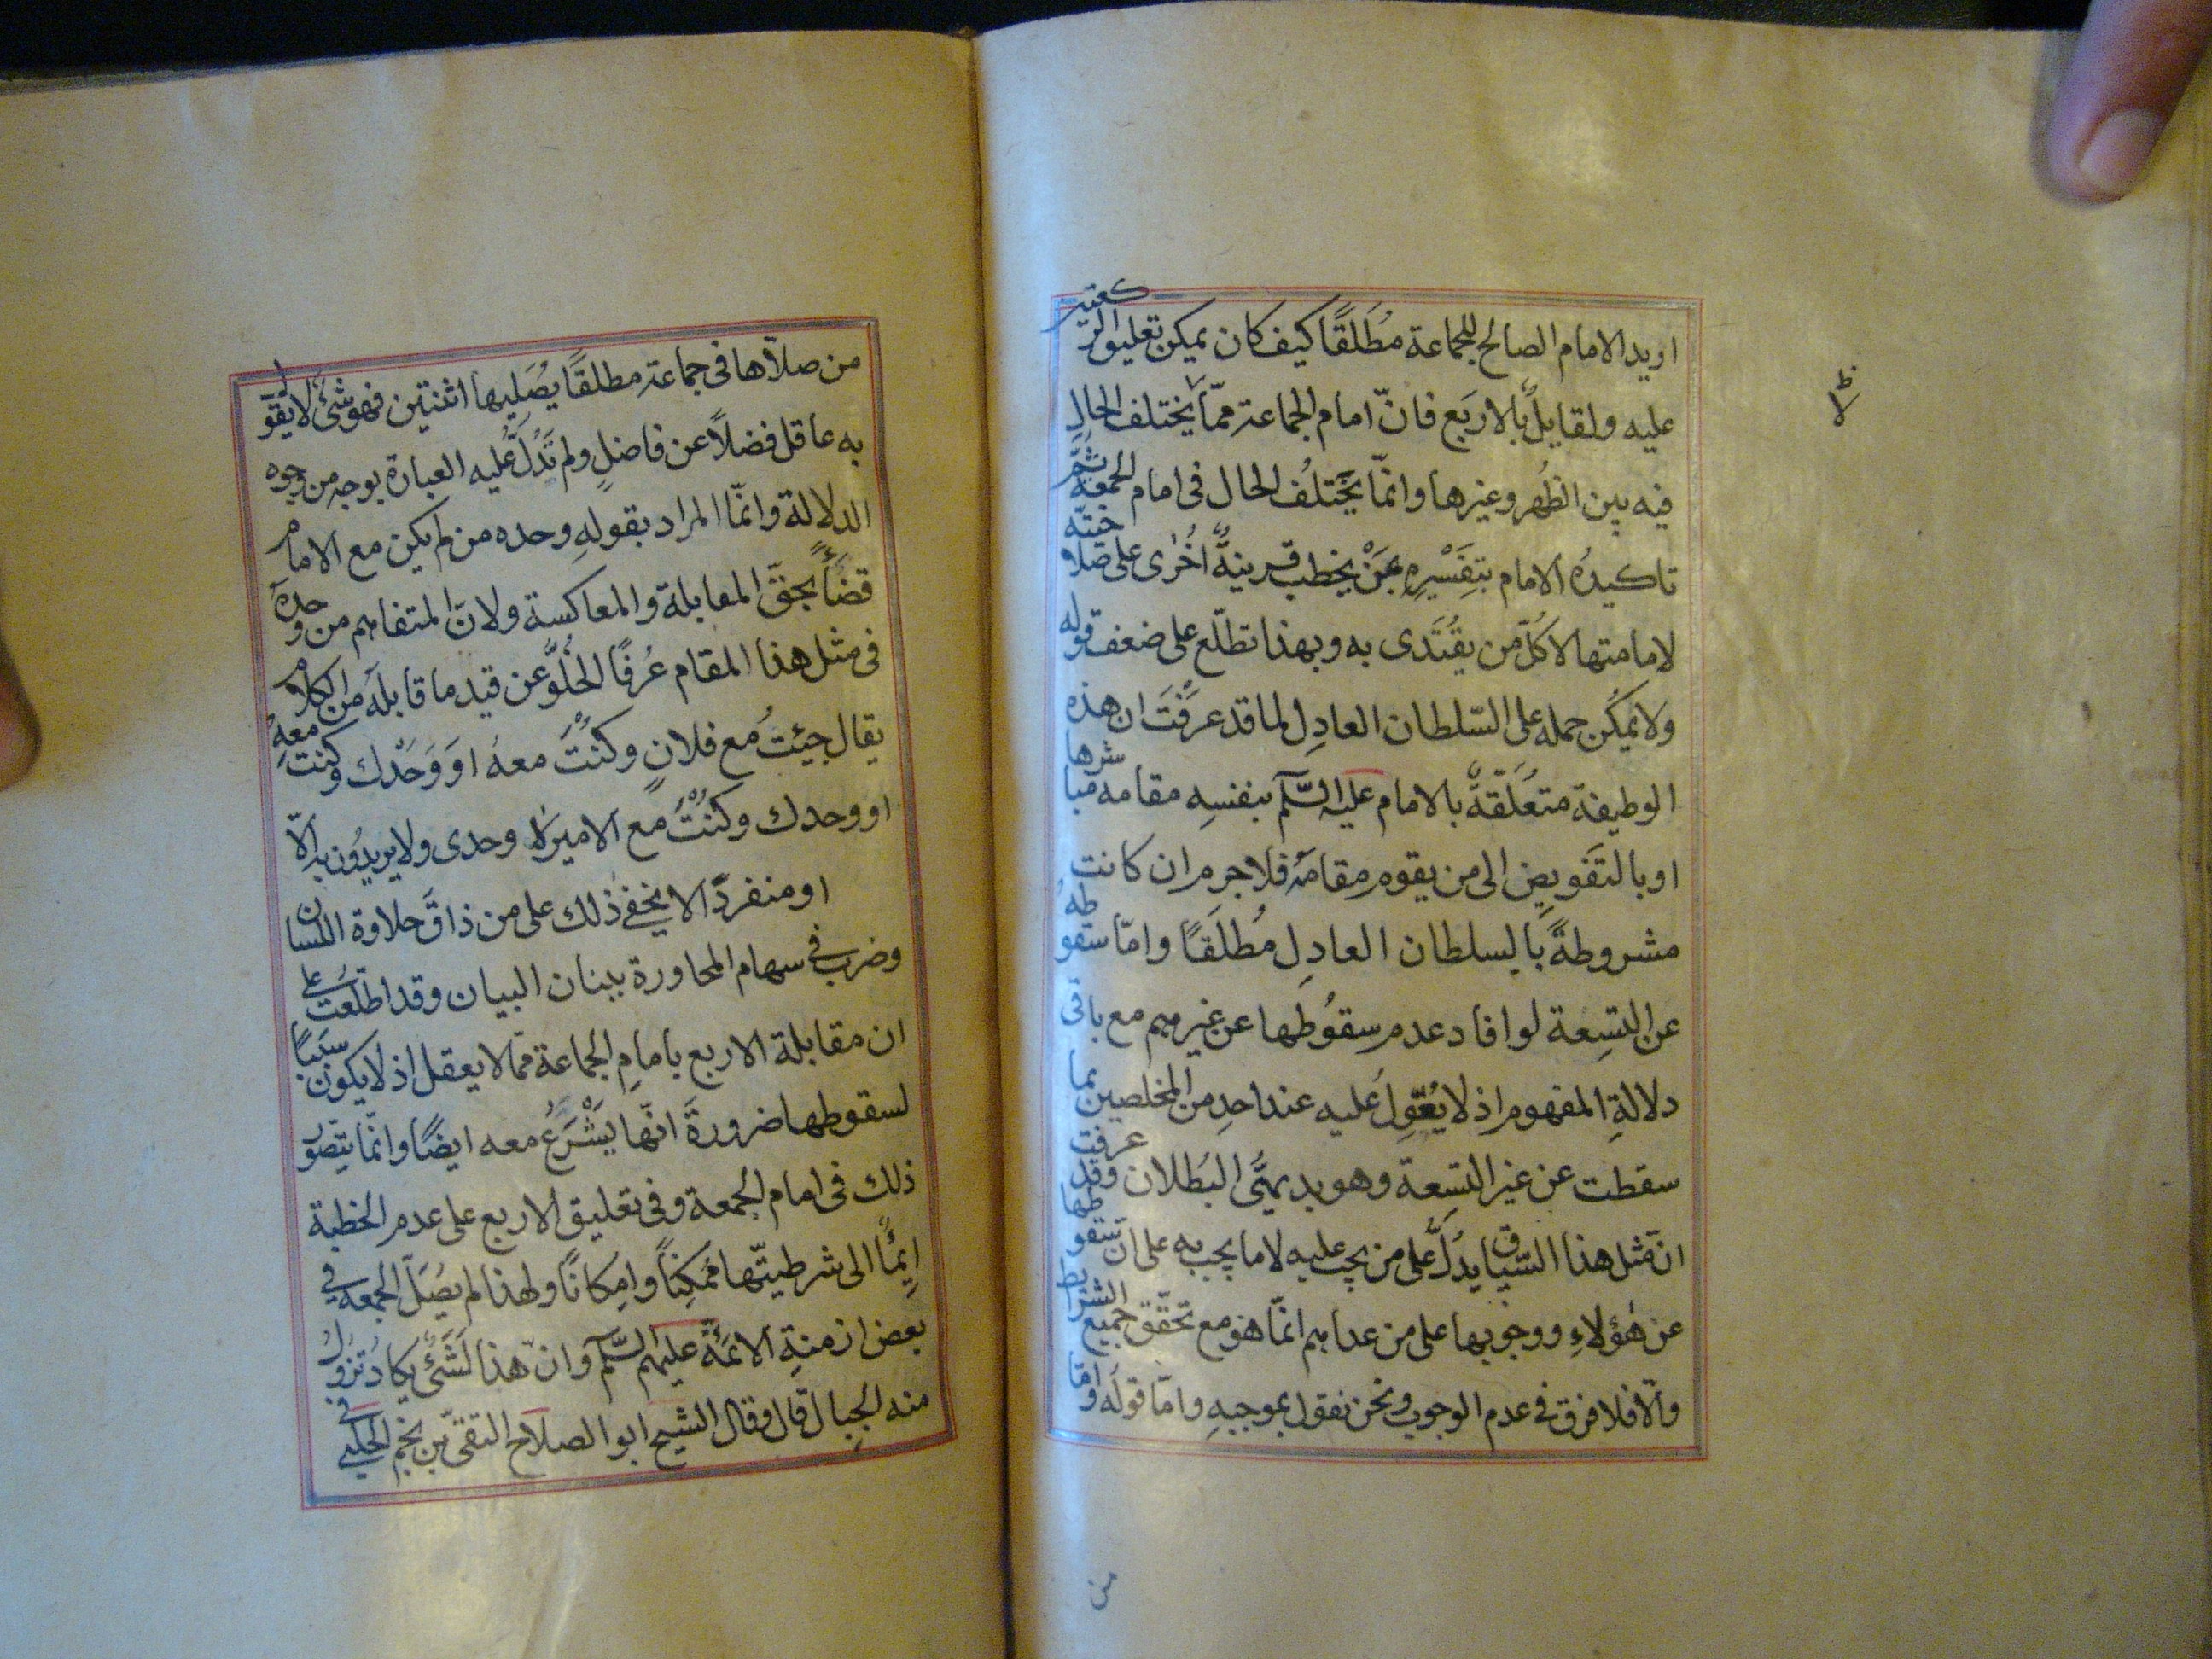 اريد الامام الصالح للجماعة مُطلَقًا كيف كان يمكن تعليق الركعتين
عليه ولقايلٌ بالاربَع فانّ امام الجماعة ممّا لا يختلف الحال
فيه بين الظُهر وغيرها وانمّا يَختلُف الحال فى امام الجمعة ثمّ
تاكيدُه الامام بتفسْيرِهِ بمَنْ يخطب قرينةٌ اُخرٰى على صلاحيّته
لامامتها لا كُلّ من يقُتَدى به وبهذا تطلّع على ضعف قوله
ولا يمكُن حمله على السّلطان العادِل لما قد عرفْتَ ان هذه
الوظيفة متعُلّقةٌ بالامام عليه السَّلم بنفسِه مقامه مباشرها
او بالتَفويضِ الى من يقوم مقامَهُ فلا جرم ان كانت
مشروطةً بالسلطان العادِل مُطلَقًا وامّا سقوطهُ
عن التسِعة لو افاد عدم سقوُطها عن غيرهم مع باقى
دلالةِ المفهوم اذ لا يُعّوِل عليه عند احدٍ من المخلصين بما
سقطت عن غير التسِعة وهو بديهىُّ البُطلان وقد عرفت
انّ مثل هذا السّياق يدُلُّ على من يجب عليه لا ما يجب به على انّ سقوطها
عن هٰؤلاءِ ووجوبها على من عداهم انمّا هو مع تحَقّق جميع الشرايط
والّا فلا فرق فى عدم الوجوب ونحن نقول بموجبِه وامّا قوله واقا
من صلّاها فى جماعة مطلقًا يُصَليها اثنتين فهو شئٌ لا يتفوّ
به عاقل فضلاً عن فاضلٍ ولم تَدُلَّ عليه العبارة بوجه من وجوه
الدلالة وانمّا المراد بقولهِ وحده من لم يكن مع الامام
قضاءً بحقّ المقابلة والمعاكسة ولانّ المتفاهم من وحدهَ
فى مثل هذا المقام عُرفًا الخُلُوّ عن قيد ما قابله من الكلام
يقال جيئتُ مع فلانٍ وكنْتُ معهُ او وَحْدك وكنت معهِ
او وحدك وكنْتُ مع الامير لا وحدى ولا يريدُون به الّا
او منفردًا لا يخفى ذلك على من ذاقَ حلاوة اللسان
وضرب فى سهام المحاورة ببنان البيان وقد اطلّعتَ على
ان مقابلة الاربع بامامِ الجماعة ممّا لا يعقل اذ لا يكون سببًا
لسقوطها ضرورةَ انّها يَشْرَعُ معه ايضًا وانمّا يتصّور
ذلك فى امام الجمعة وفى تعليق الاربع على عدم الخطبة
ايماءٌ الى شرطيّتها ممُكِنًا وامكانًا ولهذا لم يصُلّ الجمعه فى
بعض ازمنةِ الائمّة عليهم السَّلم وانّ هذا لَشَئٌ يكاد تزول
منه الجبِال قال وقال الشيخ ابو الصلاح التقىّ بن نجم الحلبى فى